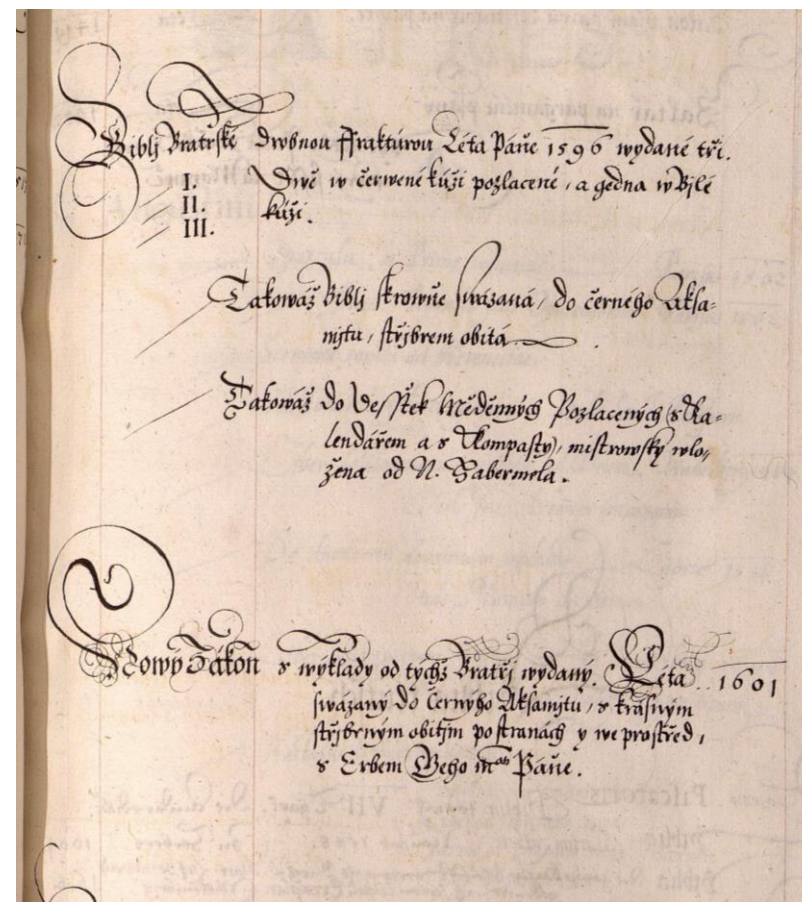 Biblj Bratrské drobnou Frakturou Léta Páně 1596 wydané tři.
I. Dwě w čerwené kůži pozlacené, a gedna w Bjlé
II. kůži.
III.
Takowáž Biblj skrowně swázaná, do černého Aksa-
mjtu, střjbrem obitá
Takowáž do Desstek Měděnných Pozlacených (s Ka-
lendářem a s Kompasty), mistrowsky wlo-
žena od N. Habermela.
Nowý Zákon s wýklady od týchž Bratřj wydaný. Léta 1601
swázaný do Černýho Aksamjtu, s krásným
střjbrným obitjm po stranách y we prostřed,
s Erbem Geho mti Páně.